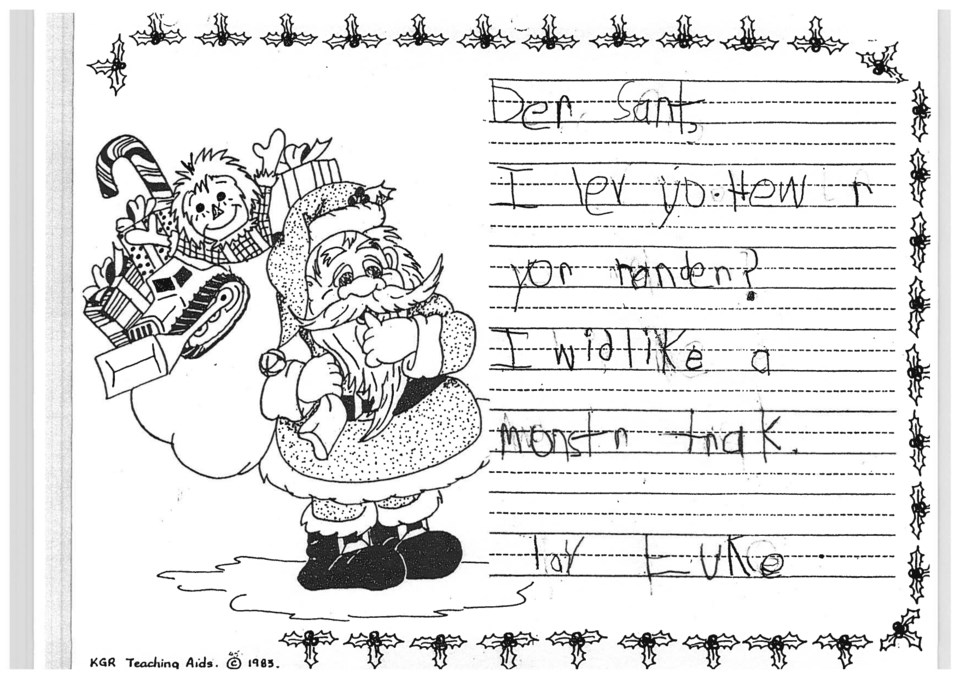 Der Sant,
I lev yo. Hew r
yor randen?
I widlike a
monstr trak.
lov Luke
KGR Teaching Aids. © 1983.